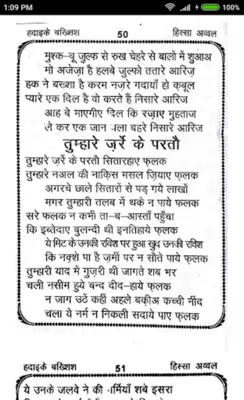 1:09 PM
हदाइके बख़्शिश 50 हिस्सा अव्वल
मुश्क-बू ज़ुल्फ़ से रुख़ चेहरे से बालों में शुआअ
मो अजेज़ा है हलबे ज़ुल्फ़ो ततारे आरिज़
हक़ ने बख़्शा है करम नज़रे गदायाँ हो क़बूल
प्यारे एक दिल है वो करते हैं निसारे आरिज
आह बे माएगीए दिल कि रज़ाए मुहताज
ले कर एक जान चला बहरे निसारे आरिज़
तुम्हारे ज़र्रे के परतौ
तुम्हारे ज़र्रे के परतौ सितारहाए फ़लक
तुम्हारे नअल की नाक़िस मसल ज़ियाए फ़लक
अगरचे छाले सितारों से पड़ गये लाखों
मगर तुम्हारी तलब में थके न पाये फ़लक
सरे फ़लक न कभी ता-ब-आस्ताँ पहुँचा
कि इब्तेदाए बुलन्दी थी इन्तिहाये फ़लक
ये मिट के उनकी रविश पर हुआ ख़ुद उनकी रविश
कि नक़्शे पा है ज़मीं पर न सौते पाये फ़लक
तुम्हारी याद में गुज़री थी जागते शब भर
चली नसीम हुये बन्द दीद-हाये फ़लक
न जाग उठें कहीं अहले बक़ीअ कच्ची नींद
चला ये नर्म न निकली सदाये पाए फ़लक
हदाइके बख़्शिश 51 हिस्सा अव्वल
ये उनके जलवे ने कीं गर्मियाँ शबे इसरा